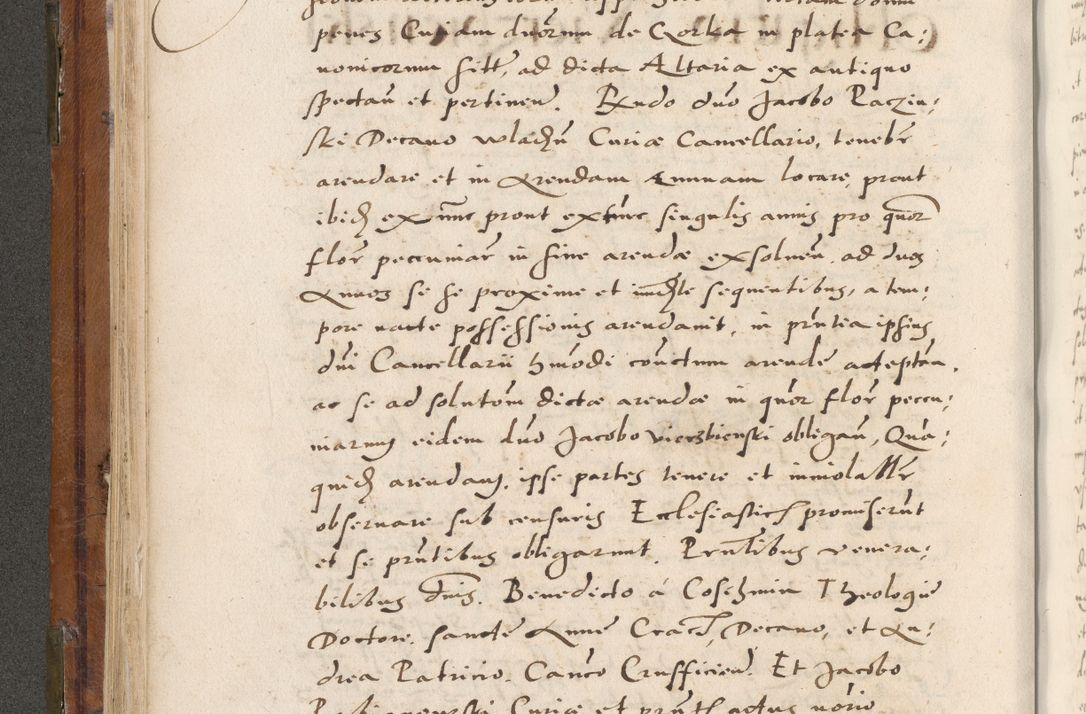 penes Curiam dnorum de Czorka in platea Ca:
nonicorum sitt, ad dicta Altaria ex antiquo
spectan et pertinen. Rndo dno Jacobo Paczin:
ski Decano wladn Curiæ Cancellario, teneb
arendare et in Arendam Annuam locare, prout
ibid ex nunc prout ex tunc singulis annis pro quor
flor pecuniar in fine arendæ exsoluen, ad duos
Annos se se proxime et imdle sequentibus, a tem:
pore nacte possessionis arendauit, in pntia ipsius
dni Cancellarii hmodi contctum arende acceptan,
ac se ad solutom dictæ arendæ in quor flor pecu:
niarum eidem dno Jacobo vierzbienski obligan, Qua:
quid arendam, ipse partes tenere et inuiolabilr
obseruare sub censuris Ecclesiastic promiserunt
et se pntibus obligarunt. Pntibus venera:
bilibus dnis. Benedicto á Coszmin Theologie
Doctore, sancte Anne Crac, Decano, et An:
drea Patricio. Canco Crusficien. Et Jacobo
Curiæ et pnt actus norio